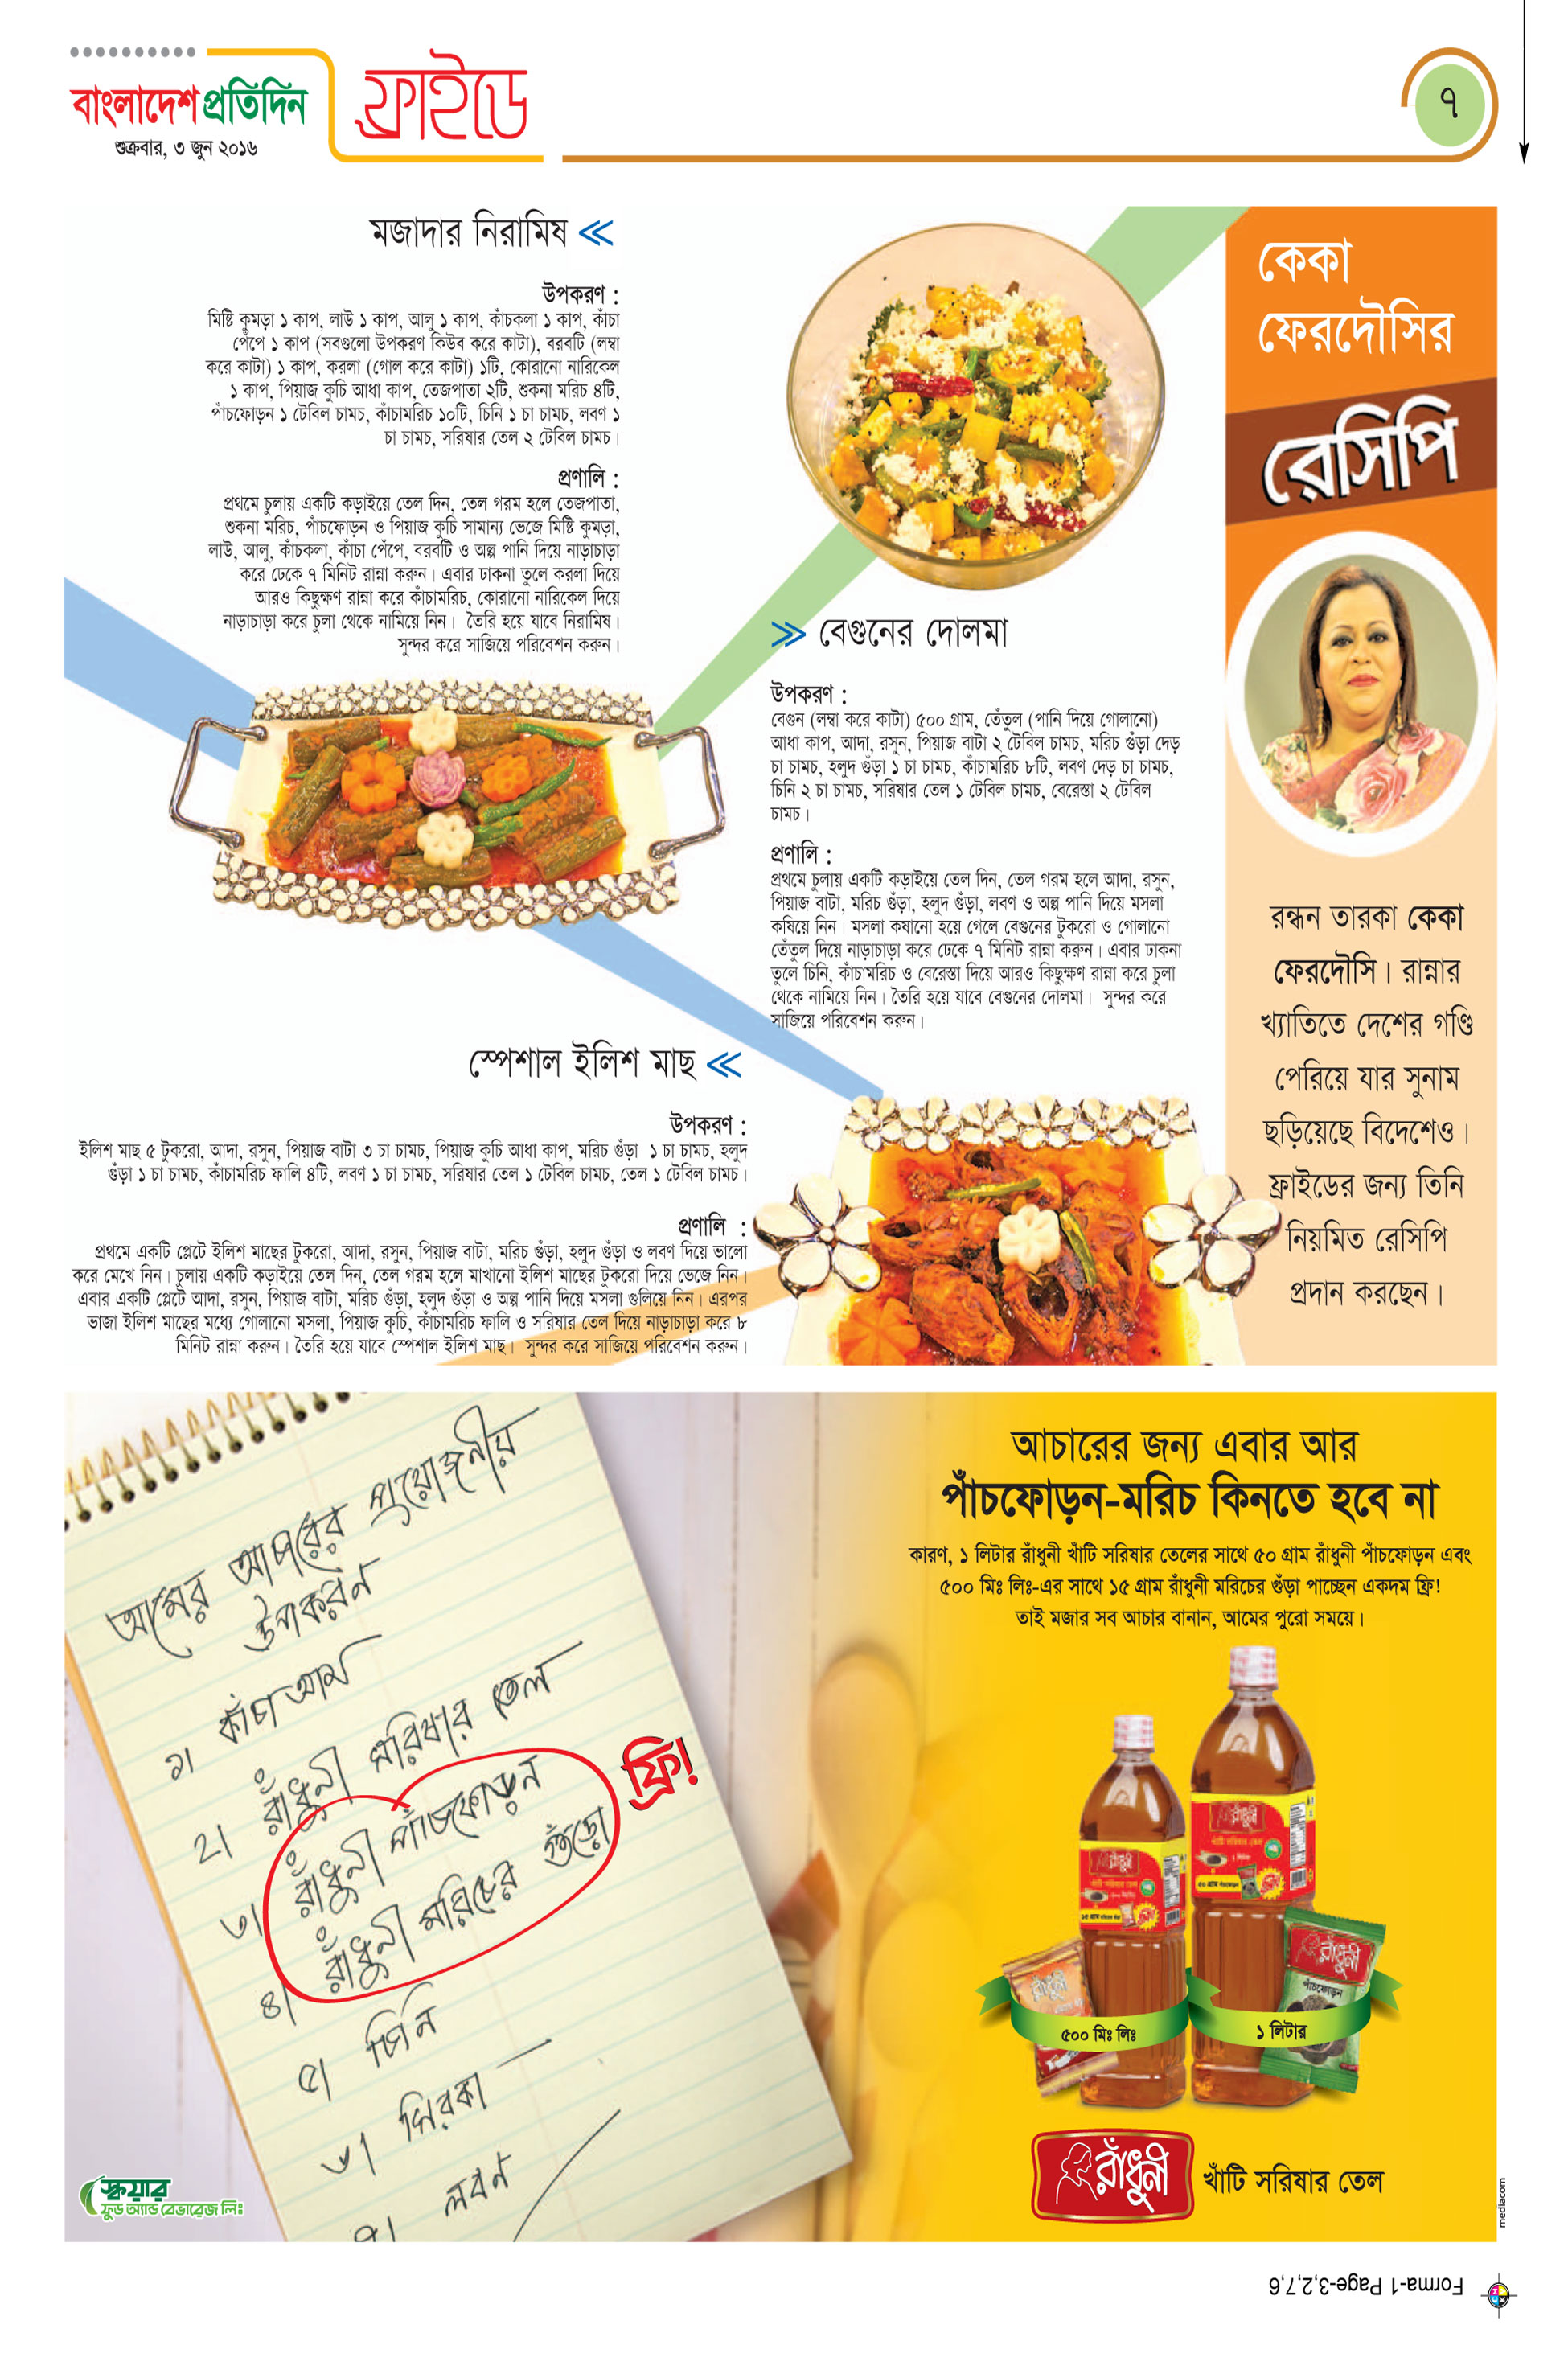 বাংলাদেশ প্রতিদিন
শুক্রবার, ৩ জুন ২০১৬
ফ্রাইডে
৭
মজাদার নিরামিষ
উপকরণ :
মিষ্টি কুমড়া ১ কাপ, লাউ ১ কাপ, আলু ১ কাপ, কাঁচকলা ১ কাপ, কাঁচা
পেঁপে ১ কাপ (সবগুলো উপকরণ কিউব করে কাটা), বরবটি (লম্বা
করে কাটা) ১ কাপ, করলা (গোল করে কাটা) ১টি, কোরানো নারিকেল
১ কাপ, পিয়াজ কুচি আধা কাপ, তেজপাতা ২টি, শুকনা মরিচ ৪টি,
পাঁচফোড়ন ১ টেবিল চামচ, কাঁচামরিচ ১০টি, চিনি ১ চা চামচ, লবণ ১
চা চামচ, সরিষার তেল ২ টেবিল চামচ।
প্রণালি :
প্রথমে চুলায় একটি কড়াইয়ে তেল দিন, তেল গরম হলে তেজপাতা,
শুকনা মরিচ, পাঁচফোড়ন ও পিয়াজ কুচি সামান্য ভেজে মিষ্টি কুমড়া,
লাউ, আলু, কাঁচকলা, কাঁচা পেঁপে, বরবটি ও অল্প পানি দিয়ে নাড়াচাড়া
করে ঢেকে ৭ মিনিট রান্না করুন। এবার ঢাকনা তুলে করলা দিয়ে
আরও কিছুক্ষণ রান্না করে কাঁচামরিচ, কোরানো নারিকেল দিয়ে
নাড়াচাড়া করে চুলা থেকে নামিয়ে নিন। তৈরি হয়ে যাবে নিরামিষ।
সুন্দর করে সাজিয়ে পরিবেশন করুন।
বেগুনের দোলমা
উপকরণ :
বেগুন (লম্বা করে কাটা) ৫০০ গ্রাম, তেঁতুল (পানি দিয়ে গোলানো)
আধা কাপ, আদা, রসুন, পিয়াজ বাটা ২ টেবিল চামচ, মরিচ গুঁড়া দেড়
চা চামচ, হলুদ গুঁড়া ১ চা চামচ, কাঁচামরিচ ৮টি, লবণ দেড় চা চামচ,
চিনি ২ চা চামচ, সরিষার তেল ১ টেবিল চামচ, বেরেস্তা ২ টেবিল
চামচ।
প্রণালি :
প্রথমে চুলায় একটি কড়াইয়ে তেল দিন, তেল গরম হলে আদা, রসুন,
পিয়াজ বাটা, মরিচ গুঁড়া, হলুদ গুঁড়া, লবণ ও অল্প পানি দিয়ে মসলা
কষিয়ে নিন। মসলা কষানো হয়ে গেলে বেগুনের টুকরো ও গোলানো
তেঁতুল দিয়ে নাড়াচাড়া করে ঢেকে ৭ মিনিট রান্না করুন। এবার ঢাকনা
তুলে চিনি, কাঁচামরিচ ও বেরেস্তা দিয়ে আরও কিছুক্ষণ রান্না করে চুলা
থেকে নামিয়ে নিন। তৈরি হয়ে যাবে বেগুনের দোলমা। সুন্দর করে
সাজিয়ে পরিবেশন করুন।
স্পেশাল ইলিশ মাছ
উপকরণ :
ইলিশ মাছ ৫ টুকরো, আদা, রসুন, পিয়াজ বাটা ৩ চা চামচ, পিয়াজ কুচি আধা কাপ, মরিচ গুঁড়া ১ চা চামচ, হলুদ
গুঁড়া ১ চা চামচ, কাঁচামরিচ ফালি ৪টি, লবণ ১ চা চামচ, সরিষার তেল ১ টেবিল চামচ, তেল ১ টেবিল চামচ।
প্রণালি :
প্রথমে একটি প্লেটে ইলিশ মাছের টুকরো, আদা, রসুন, পিয়াজ বাটা, মরিচ গুঁড়া, হলুদ গুঁড়া ও লবণ দিয়ে ভালো
করে মেখে নিন। চুলায় একটি কড়াইয়ে তেল দিন, তেল গরম হলে মাখানো ইলিশ মাছের টুকরো দিয়ে ভেজে নিন।
এবার একটি প্লেটে আদা, রসুন, পিয়াজ বাটা, মরিচ গুঁড়া, হলুদ গুঁড়া ও অল্প পানি দিয়ে মসলা গুলিয়ে নিন। এরপর
ভাজা ইলিশ মাছের মধ্যে গোলানো মসলা, পিয়াজ কুচি, কাঁচামরিচ ফালি ও সরিষার তেল দিয়ে নাড়াচাড়া করে ৮
মিনিট রান্না করুন। তৈরি হয়ে যাবে স্পেশাল ইলিশ মাছ। সুন্দর করে সাজিয়ে পরিবেশন করুন।
কেকা
ফেরদৌসির
রেসিপি
রন্ধন তারকা কেকা
ফেরদৌসি। রান্নার
খ্যাতিতে দেশের গণ্ডি
পেরিয়ে যার সুনাম
ছড়িয়েছে বিদেশেও।
ফ্রাইডের জন্য তিনি
নিয়মিত রেসিপি
প্রদান করছেন।
আমের আচারের প্রয়োজনীয়
উপকরন
১। কাঁচা আম
২। রাঁধুনী সরিষার তেল
৩। রাঁধুনী পাঁচফোড়ন
৪। রাঁধুনী মরিচের গুঁড়ো
ফ্রি!
৫। চিনি
৬। সিরকা
৭। লবন
স্কয়ার
ফুড অ্যান্ড বেভারেজ লিঃ
আচারের জন্য এবার আর
পাঁচফোড়ন-মরিচ কিনতে হবে না
কারণ, ১ লিটার রাঁধুনী খাঁটি সরিষার তেলের সাথে ৫০ গ্রাম রাঁধুনী পাঁচফোড়ন এবং
৫০০ মিঃ লিঃ-এর সাথে ১৫ গ্রাম রাঁধুনী মরিচের গুঁড়া পাচ্ছেন একদম ফ্রি!
তাই মজার সব আচার বানান, আমের পুরো সময়ে।
রাঁধুনী
খাঁটি সরিষার তেল
রাঁধুনী
খাঁটি সরিষার তেল
রাঁধুনী
রাঁধুনী
পাঁচফোড়ন
৫০০ মিঃ লিঃ
১ লিটার
রাঁধুনী
খাঁটি সরিষার তেল
mediacom
Forma-1 Page-3,2,7,6